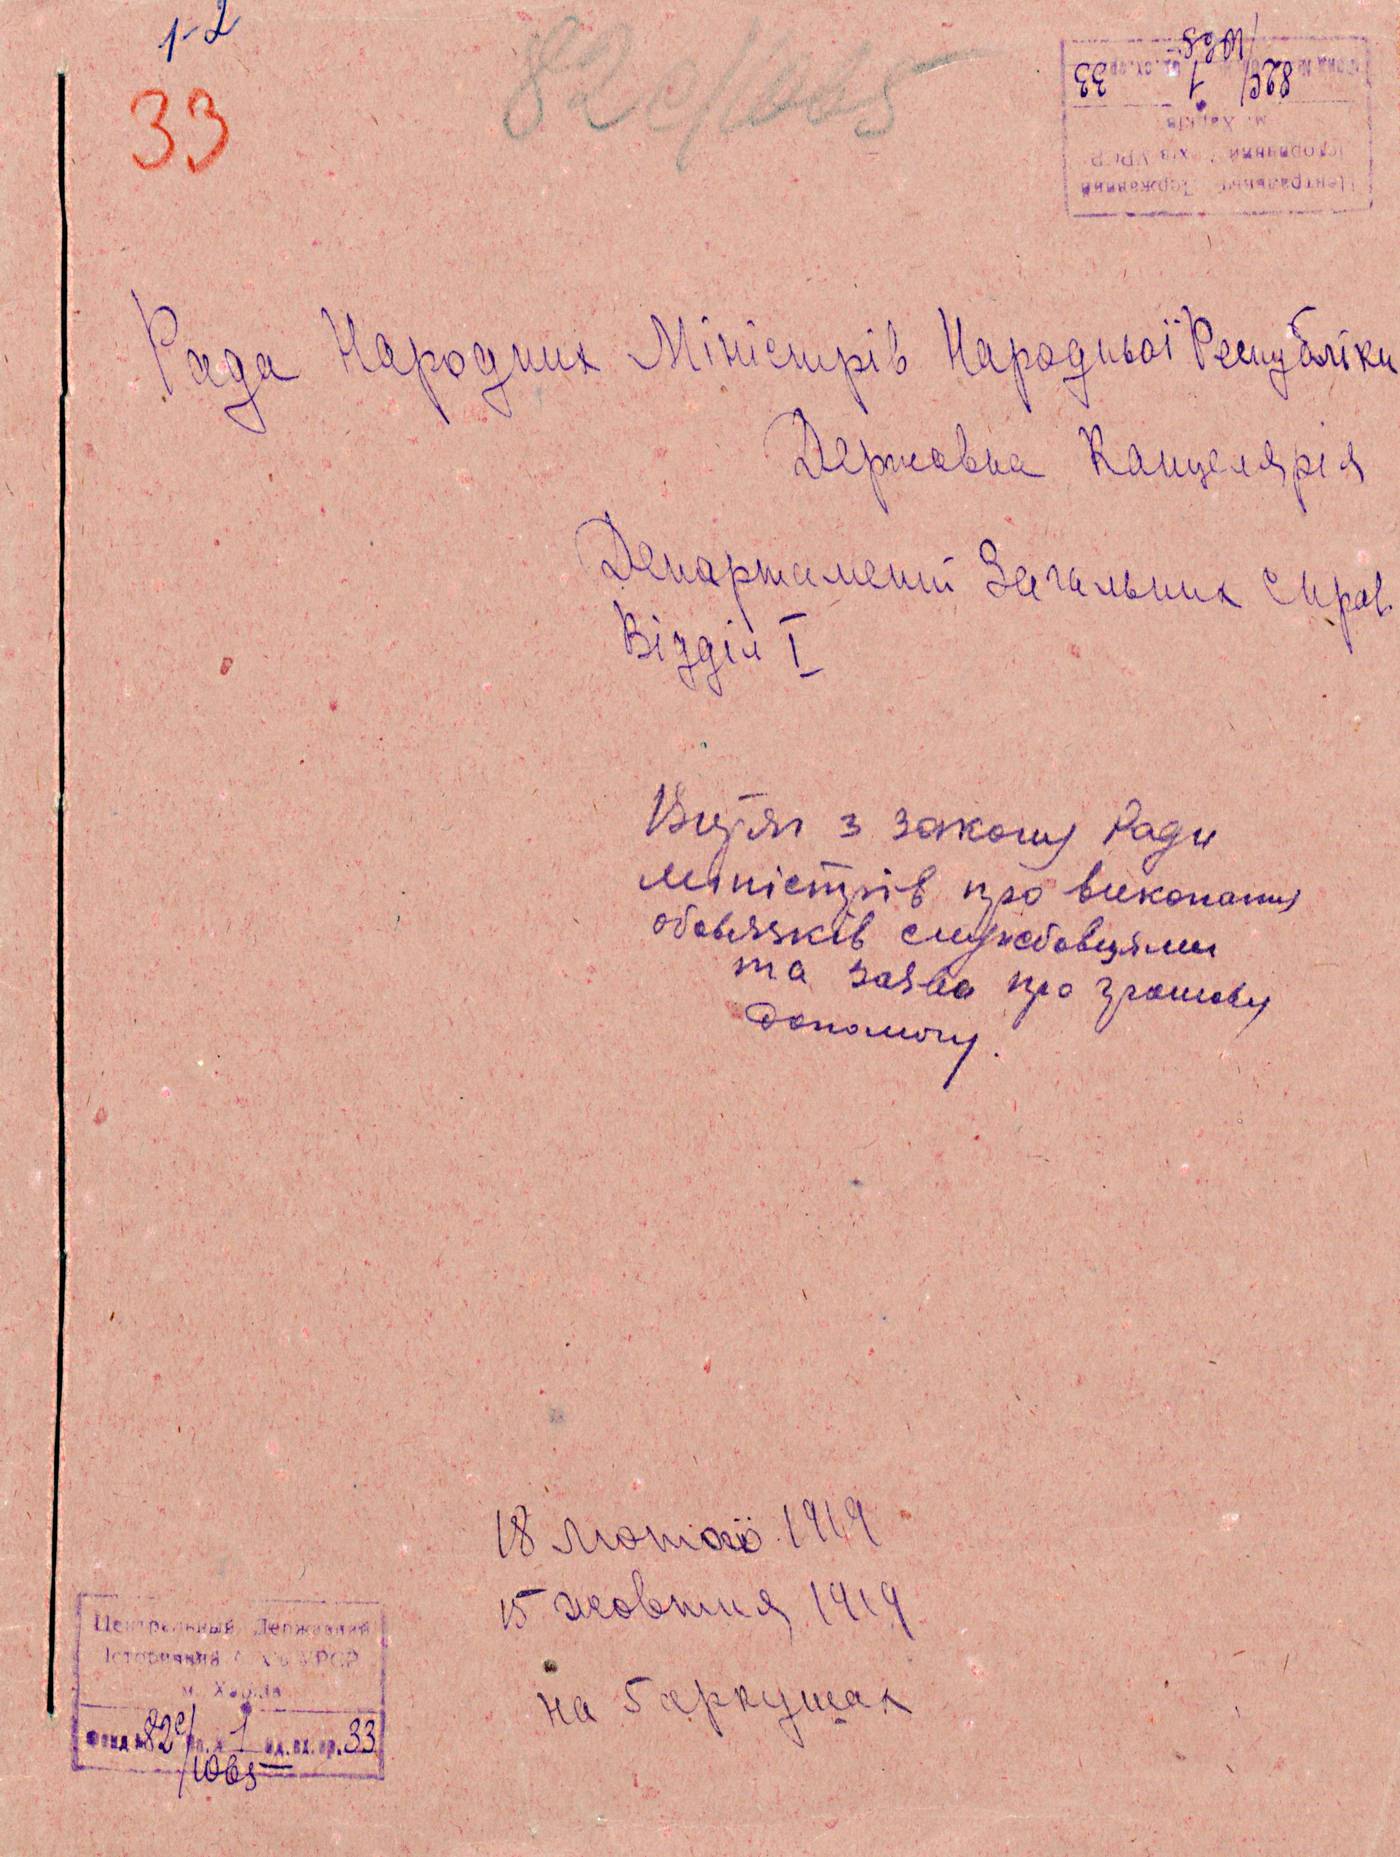 1-2
33
82с/1065
82с/1065 1 33
м. Харків
Історичний Архів УРСР
Центральний Державний
Рада Народних Міністрів Народньої Республіки
Державна Канцелярія
Департамент Загальних Справ
Відділ I
Витяг з закону Ради
міністрів про виконання
обовязків службовцями
та заява про грошову
допомогу.
18 лютого 1919
15 жовтня 1919
на 5 аркушах
Центральный Державний
Історичний Архів УРСР
м. Харків
Фонд № 82с/1065 оп. № 1 од. зх. ар. 33